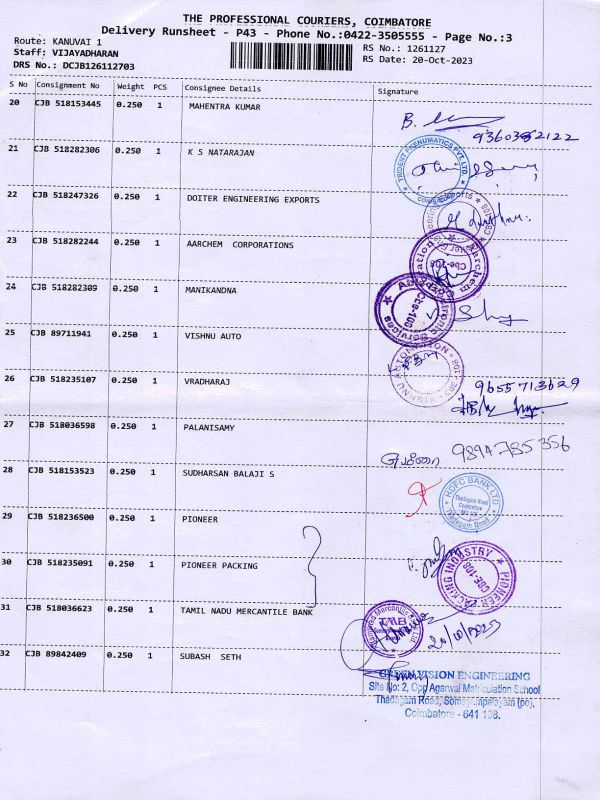 THE PROFESSIONAL COURIERS, COIMBATORE
Delivery Runsheet - P43 - Phone No.:0422-3505555 - Page No.:3
Route: KANUVAI 1
RS No.: 1261127
Staff: VIJAYADHARAN
RS Date: 20-Oct-2023
DRS No.: DCJB126112703
S No Consignment No Weight PCS Consignee Details Signature
20 CJB 518153445 0.250 1 MAHENTRA KUMAR
21 CJB 518282306 0.250 1 K S NATARAJAN
TRIDENT PNEUMATICS PVT. LTD.
22 CJB 518247326 0.250 1 DOITER ENGINEERING EXPORTS
23 CJB 518282244 0.250 1 AARCHEM CORPORATIONS
24 CJB 518282309 0.250 1 MANIKANDNA
25 CJB 89711941 0.250 1 VISHNU AUTO
26 CJB 518235107 0.250 1 VRADHARAJ
9655713629
27 CJB 518036598 0.250 1 PALANISAMY
9894785356
28 CJB 518153523 0.250 1 SUDHARSAN BALAJI S
HDFC BANK LTD
Thadagam Road
Coimbatore
29 CJB 518236500 0.250 1 PIONEER
30 CJB 518235091 0.250 1 PIONEER PACKING
PIONEER PACKING INDUSTRY
CBE-108
31 CJB 518036623 0.250 1 TAMIL NADU MERCANTILE BANK
TMB
20/10/2023
32 CJB 89842409 0.250 1 SUBASH SETH
GREEN VISION ENGINEERING
Site No: 2, Opp Agarwal Matriculation School
Thadagam Road, Somayampalayam (po),
Coimbatore - 641 108.